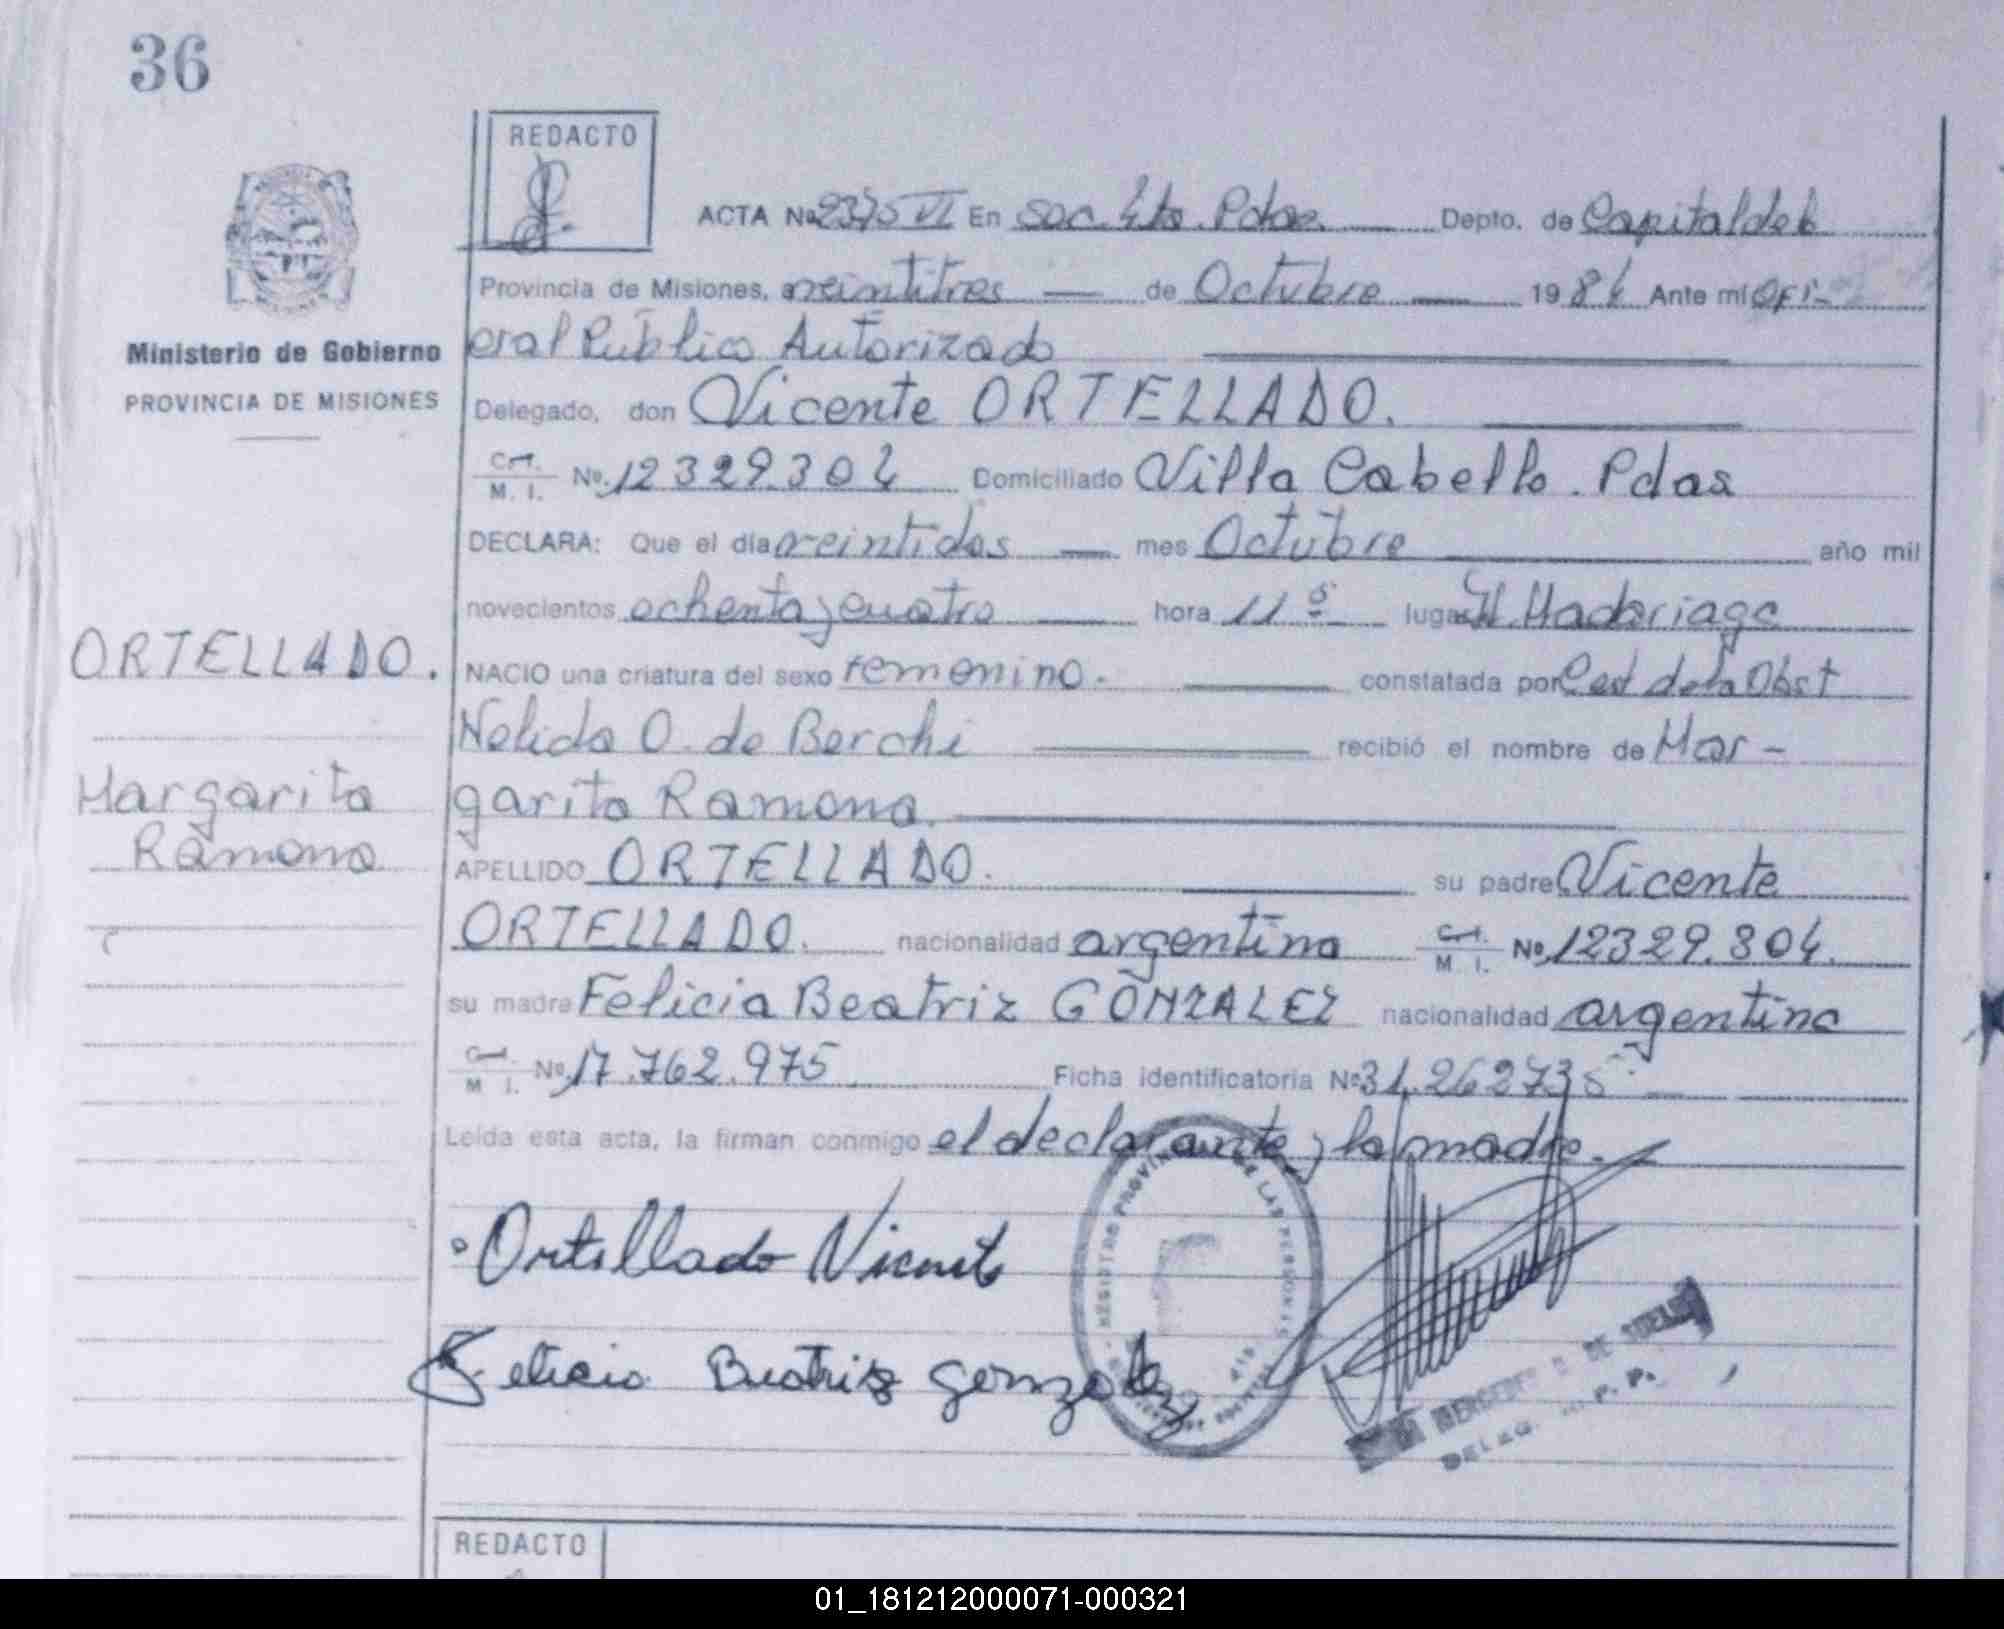 36
REDACTO
ACTA No 2375 VI En Sec. 4ta. Pdas. Depto. de Capital de la
Provincia de Misiones, a veintitres de Octubre 1984 Ante mi Ofi-
cial Público Autorizado
Ministerio de Gobierno
PROVINCIA DE MISIONES
Delegado, don Vicente ORTELLADO.
M. I. No. 12329.304 Domiciliado Villa Cabello. Pdas
DECLARA: Que el día veintidos mes Octubre año mil
novecientos ochenta y cuatro hora 11 lugar H. Madariaga
ORTELLADO.
NACIO una criatura del sexo femenino. constatada por Cert de la Obst
Nelida O. de Berchi recibió el nombre de Mar-
Margarita
garita Ramona.
Ramona
APELLIDO ORTELLADO. su padre Vicente
ORTELLADO. nacionalidad argentina M. I. No. 12329.304.
su madre Felicia Beatriz GONZALEZ nacionalidad argentina
M. I. No. 17.762.975 Ficha identificatoria No 31.262735
Leída esta acta, la firman conmigo el declarante y la madre.
Ortellado Vicente
Felicia Beatriz Gonzalez
REGISTRO PROVINCIAL DE LAS PERSONAS
MERCEDES DE
DELEG. P. P.
REDACTO
01_181212000071-000321